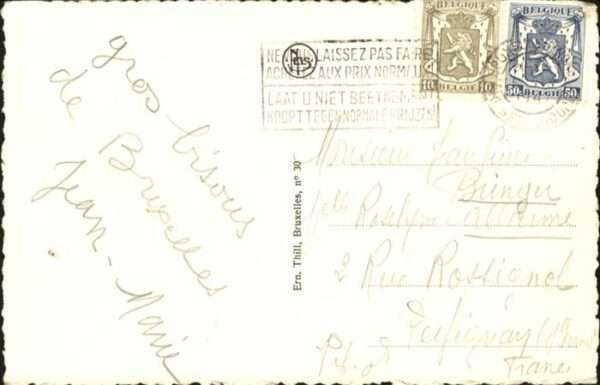 gros bisous
de Bruxelles
Jean-Marie
NE VOUS LAISSEZ PAS FAIRE
ACHETEZ AUX PRIX NORMAUX
LAAT U NIET BEETNEMEN
KOOPT TEGEN NORMALE PRIJZEN
BELGIQUE
10 10
BELGIE
BELGIQUE
50 50
BELGIE
Ern. Thill, Bruxelles, n° 30
Monsieur
Roselyne
2 Rue Rossignol
France